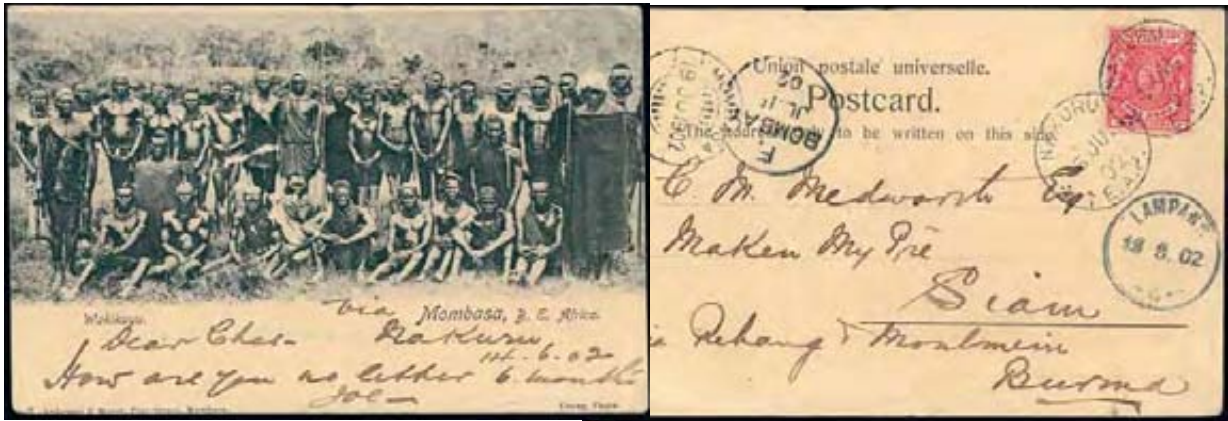 Wakikuyu.
Mombasa, B. E. Africa.
via
Dear Chas— Nakuru
14.6.02
How are you no letter 6 months
Joe—
Union postale universelle.
Postcard.
The Address only to be written on this side.
BOMBAY
JL 11
02
NAKURU
JU
02
LAMPANG
18 8. 02
C. M. Medworth Esq
Maken My Pré
Siam
Rehang & Moulmein
Burma